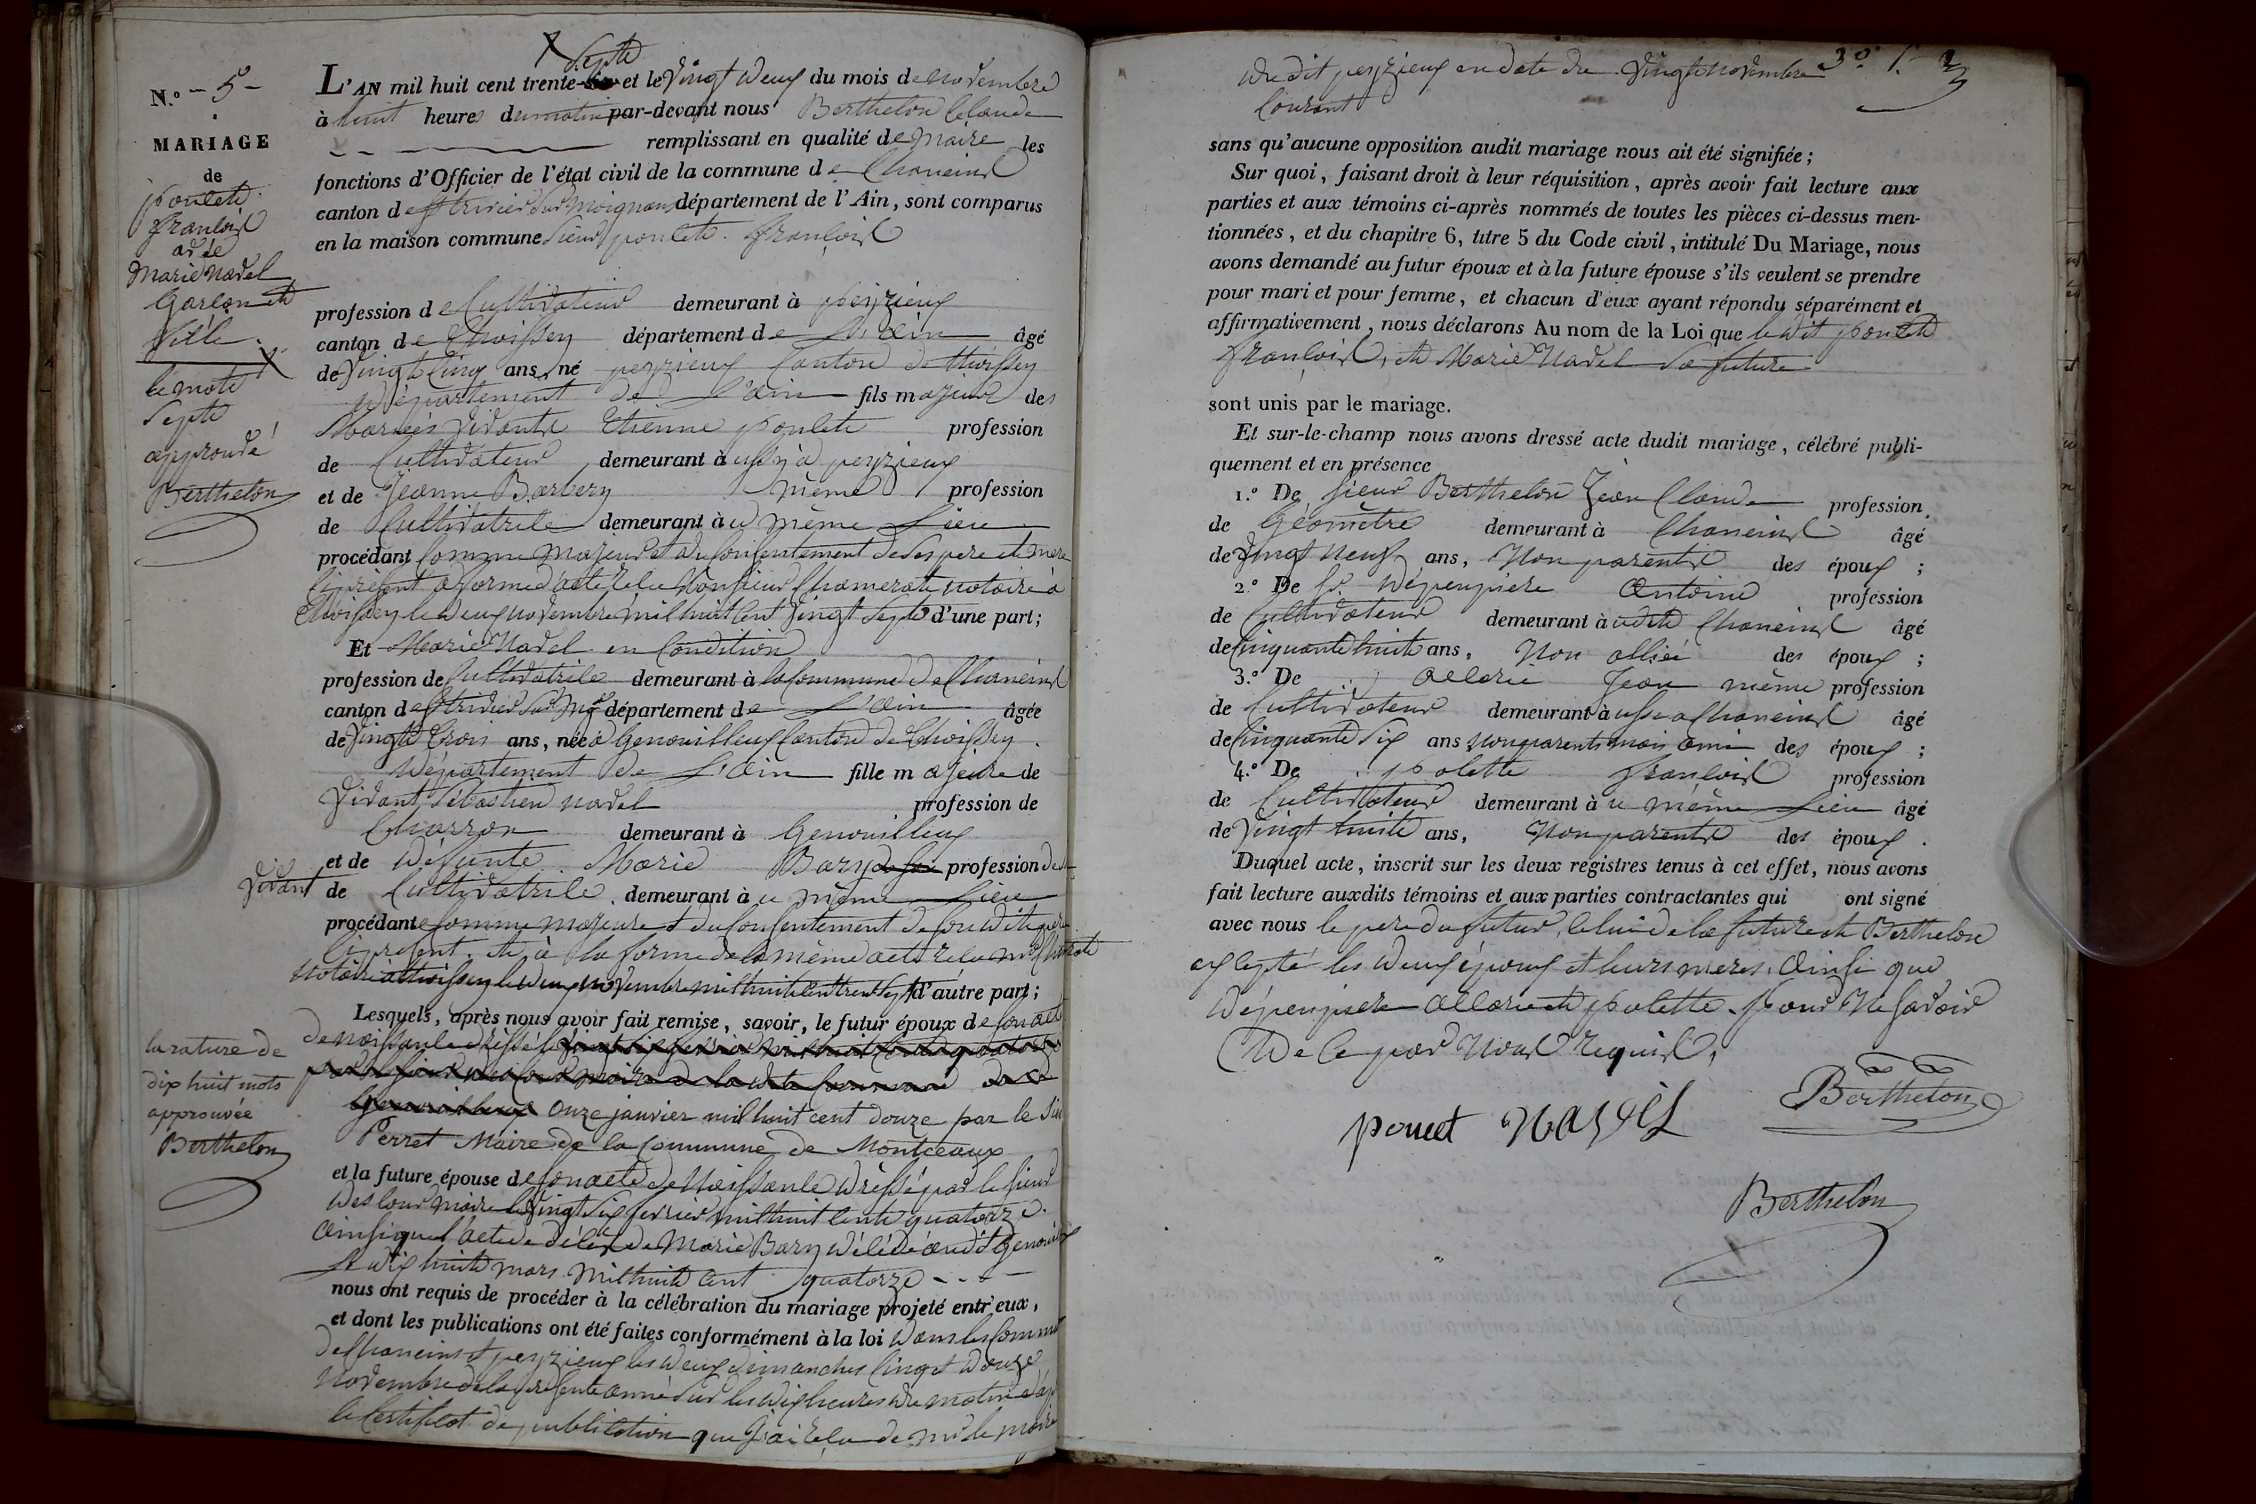 N.° - 5 -
MARIAGE
de
poulet
françois
avec
Marie Nadel
Garçon et
fille.
le mot
Septe
approuvé
Berthelon
Septe
L'AN mil huit cent trente- et le vingt deux du mois de novembre
à huit heures du matin par-devant nous Berthelon Claude
remplissant en qualité de maire les
fonctions d'Officier de l'état civil de la commune de Chaneins
canton de St trivier Sur Moignans département de l'Ain, sont comparus
en la maison commune Sieur poulet françois
profession de Cultivateur demeurant à peyzieux
canton de thoissey département de L'ain âgé
de vingt Cinq ans, né peyzieux Canton de thoissey
département de L'ain fils majeur des
Mariés vivants Etienne poulet profession
de Cultivateur demeurant à peyzieux
et de Jeanne Barbery même profession
de Cultivatrice demeurant à même Lieu
procédant Comme Majeur et du Consentement de Ses pere et mere
notaire à
thoissey le deux novembre mil huit Cent vingt Septe d'une part;
Et Marie Nadel en Condition
profession de Cultivatrice demeurant à la Commune de Chaneins
canton de St trivier Sur département de L'ain âgée
de vingt trois ans, née à Genouilleux Canton de thoissey
département de L'ain fille majeure de
vivant Sébastien nadel profession de
Charron demeurant à Genouilleux
et de défunte Marie Bary profession de
vivant de Cultivatrice demeurant à même Lieu
procédante Comme majeure et du Consentement de Son dit pere
Ci présent et à la forme de la même acte
notaire à thoissey le deux novembre mil huit Cent trente Septe d'autre part;
Lesquels, après nous avoir fait remise, savoir, le futur époux de Son acte
de naissance dréssé le
onze janvier mil huit cent douze par le Sieur
Perret Maire de la Commune de Montceaux
la rature de
dix huit mots
approuvée
Berthelon
et la future épouse de Son acte de Naissance dréssé par le Sieur
maire le vingt Six fevrier mil huit Cent quatorze.
Ainsi que l'acte de décès de Marie Bary décédée audit Genouilleux
Le dix huit mars mil huit Cent quatorze - - -
nous ont requis de procéder à la célébration du mariage projeté entr'eux,
et dont les publications ont été faites conformément à la loi dans les Communes
de Chaneins et peyzieux les deux dimanches Cinq et douze
Novembre de la présente année Sur les dix heures du matin
le Certificat de publication que J'ai reçu de mr le maire
du dit peyzieux en date du vingt novembre
Courant
sans qu'aucune opposition audit mariage nous ait été signifiée;
Sur quoi, faisant droit à leur réquisition, après avoir fait lecture aux
parties et aux témoins ci-après nommés de toutes les pièces ci-dessus men-
tionnées, et du chapitre 6, titre 5 du Code civil, intitulé Du Mariage, nous
avons demandé au futur époux et à la future épouse s'ils veulent se prendre
pour mari et pour femme, et chacun d'eux ayant répondu séparément et
affirmativement, nous déclarons Au nom de la Loi que le dit poulet
françois, et Marie Nadel Sa future
sont unis par le mariage.
Et sur-le-champ nous avons dressé acte dudit mariage, célébré publi-
quement et en présence
1.° De Sieur Berthelon Jean Claude profession
de Géomètre demeurant à Chaneins âgé
de vingt neuf ans, Non parents des époux;
2.° De Sr. dépeupiere Antoine profession
de Cultivateur demeurant à udit Chaneins âgé
de Cinquante huit ans, Non allié des époux;
3.° De allarie Jean même profession
de Cultivateur demeurant à Chaneins âgé
de Cinquante Six ans Non parents mais ami des époux;
4.° De polette françois profession
de Cultivateur demeurant à u même Lieu âgé
de vingt huit ans, Non parents des époux.
Duquel acte, inscrit sur les deux registres tenus à cet effet, nous avons
fait lecture auxdits témoins et aux parties contractantes qui ont signé
avec nous le pere du futur, Celui de la future et Berthelon
excepté les deux époux et leurs meres, Ainsi que
dépeupiere allarie et polette. pour Ne Savoir
de Ce par Nous requis.
Berthelon
pouet NADEL
Berthelon